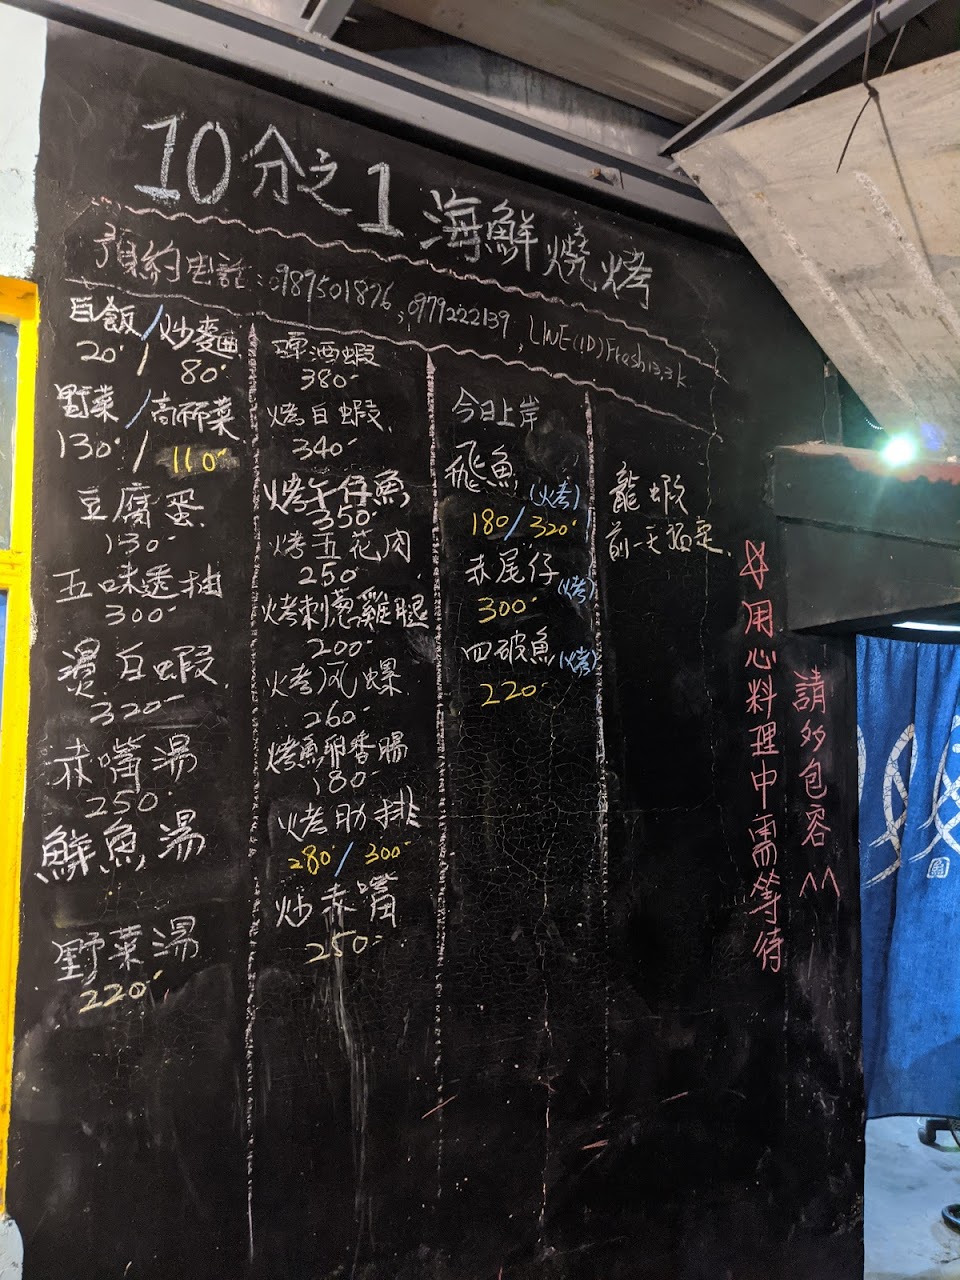 10分之1 海鮮燒烤
預約電話:0987501876,0979222139,LINE(ID)Fresh13.3k
白飯/炒麵
20/80
野菜/高麗菜
130/110
豆腐蛋
130
五味透抽
300
燙白蝦
320
赤嘴湯
250
鮮魚湯
野菜湯
220
啤酒蝦
380
烤白蝦
340
烤午仔魚
350
烤五花肉
250
烤刺葱雞腿
200
烤风螺
260
烤魚卵香腸
180
烤肋排
280/300
炒赤嘴
250
今日上岸
飛魚(烤)
180/320
赤尾仔(烤)
300
四破魚(烤)
220
龍蝦
前一天預定
用心料理中需等待
請多包容^^